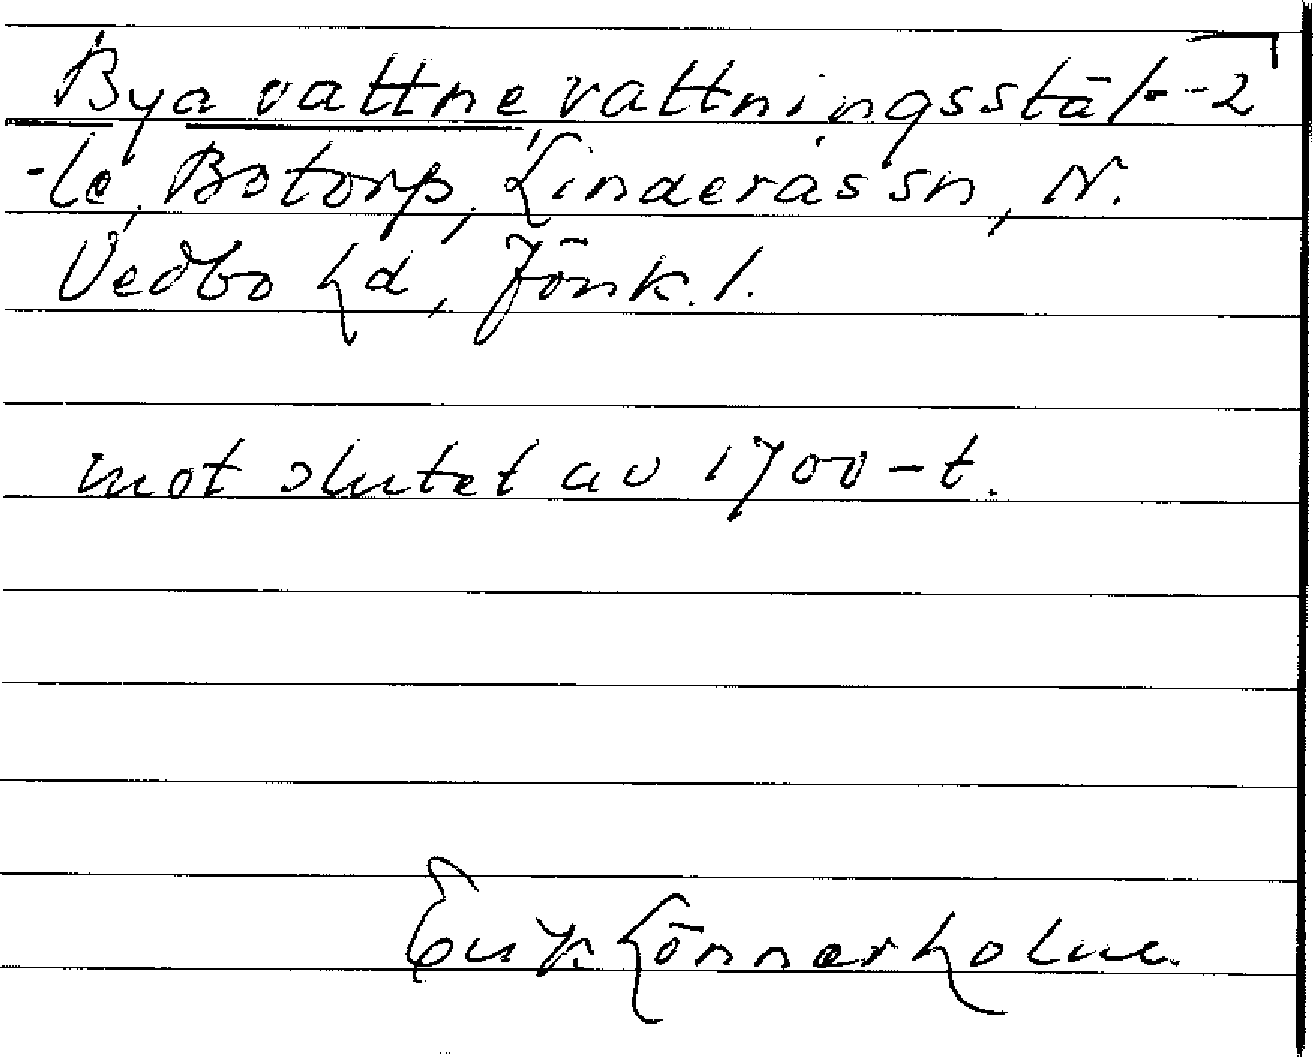 Byavattne, vattningsstäl- -2
-le, Botorp, Linderås sn, N.
Vedbo hd, Jönk. l.
mot slutet av 1700-t.
Erik Lönnerholm.